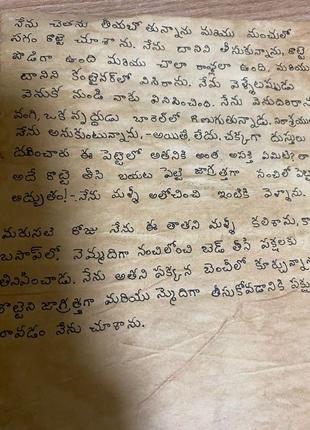 నేను చెతను తీయబోతున్నాను మరియు మంచులో
సగం రొట్టె చూశాను. నేను దానిని తీసుకున్నాను, రొట్టె
పొడిగా ఉంది మరియు చాలా రాళ్లలా ఉంది, మరియు
దానిని కంటైనర్‌లో విసిరాను. నేను వెళ్ళేటప్పుడు
వెనుక నుండి నాకు వినిపించింది. నేను వెనుదిరిగాను
వంగి, ఒక వృద్ధుడు బారెల్‌లో గిలుగుతున్నాడు. నిరాశ్రయు
నేను అనుకుంటున్నాను, - అయితే లేదు. చక్కగా దుస్తులు
ధరించారు ఈ పెట్టెలో అతనికి అంత ఆసక్తి ఏమిటి? రా
అదే రొట్టె తీసి బయట పెట్టె జాగ్రత్తగా సంచిలో పెట్ట
అద్భుతం! - నేను మళ్ళీ ఆలోచించి ఇంటికి వెళ్నాను.
మరుసటి రోజు నేను ఈ తాతని మళ్ళీ కలిశాను, కా
బసాప్‌లో. నెమ్మదిగా సంచిలోంచి బ్రెడ్ తీసి పక్షులకు
తినిపించాడు. నేను అతని పక్కన బెంచీలో కూర్చున్నా
రొట్టెని జాగ్రత్తగా మరియు న్మెదిగా తీసుకోవడానికి పక్షు
రావడం నేను చూశాను.